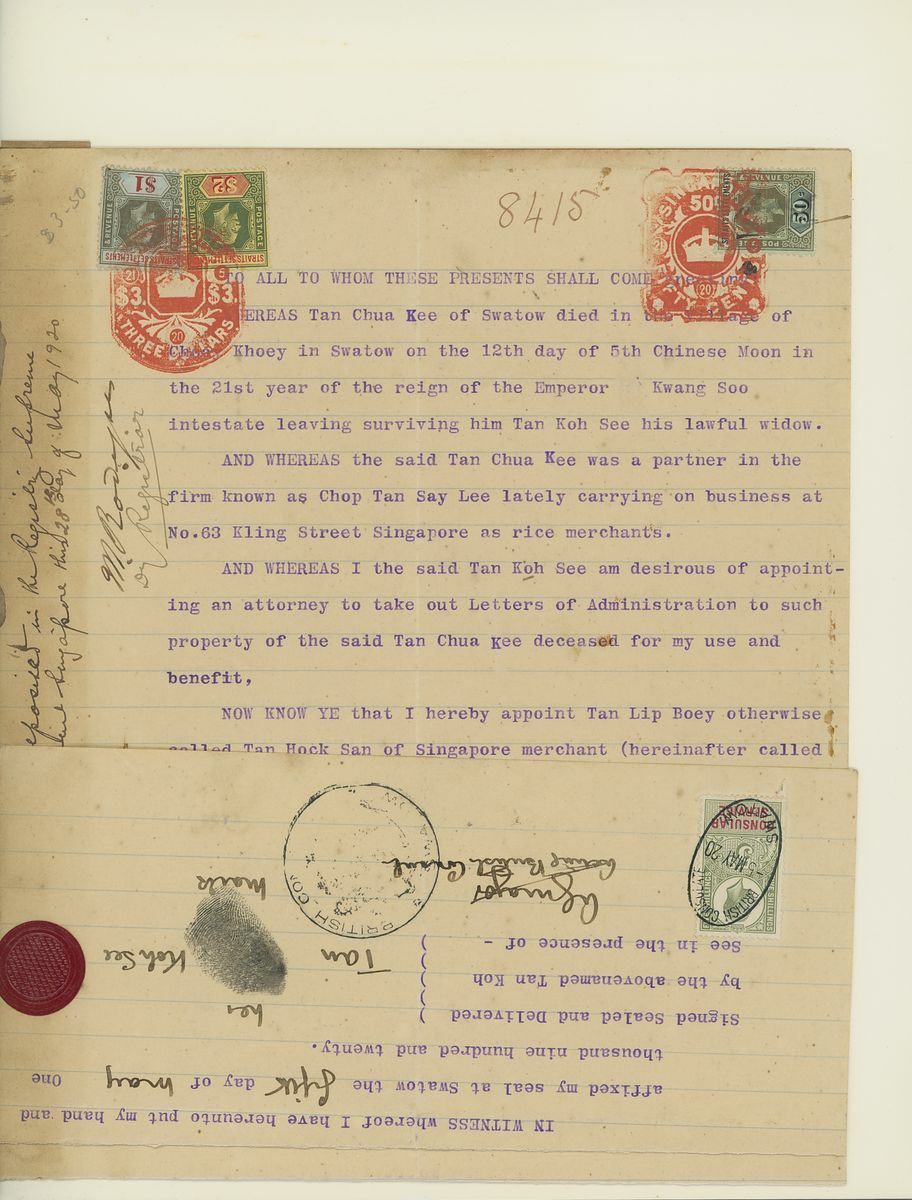 $3-50
$1
& REVENUE
STRAITS SETTLEMENTS
$2
& REVENUE
POSTAGE
STRAITS SETTLEMENTS
$3. $3.
20
THREE DOLLARS
8415
SINGAPORE
50
20
FIFTY CENTS
& REVENUE
50c
POSTAGE
TO ALL TO WHOM THESE PRESENTS SHALL COME
WHEREAS Tan Chua Kee of Swatow died in the Village of
Khoey in Swatow on the 12th day of 5th Chinese Moon in
the 21st year of the reign of the Emperor Kwang Soo
intestate leaving surviving him Tan Koh See his lawful widow.
AND WHEREAS the said Tan Chua Kee was a partner in the
firm known as Chop Tan Say Lee lately carrying on business at
No.63 Kling Street Singapore as rice merchants.
AND WHEREAS I the said Tan Koh See am desirous of appoint-
ing an attorney to take out Letters of Administration to such
property of the said Tan Chua Kee deceased for my use and
benefit,
NOW KNOW YE that I hereby appoint Tan Lip Boey otherwise
called Tan Hock San of Singapore merchant (hereinafter called
eposited in the Registry Supreme
Singapore this 28 day of May 1920
Dy Registrar
IN WITNESS whereof I have hereunto put my hand and
affixed my seal at Swatow the fifth day of May One
thousand nine hundred and twenty.
Signed Sealed and Delivered )
by the abovenamed Tan Koh )
See in the presence of - )
her
Tan Koh See
mark
Acting British Consul
BRITISH CON
CONSULAR
SERVICE
BRITISH CONSULATE
-5 MAY 20
SWATOW